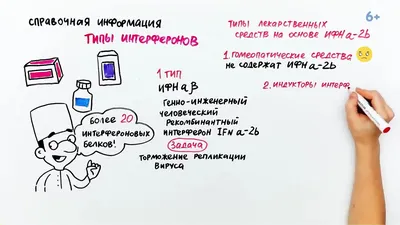 СПРАВОЧНАЯ ИНФОРМАЦИЯ
ТИПЫ ИНТЕРФЕРОНОВ
более 20
интерфероновых
белков!
1 ТИП
ИФН α β
Генно-инженерный
человеческий
Рекомбинантный
интерферон IFN α-2b
Задача
Торможение репликации
Вируса
6+
ТИПЫ ЛЕКАРСТВЕННЫХ
СРЕДСТВ НА ОСНОВЕ ИФН α-2b
1. Гомеопатические средства
не содержат ИФН α-2b
2. индукторы интерф